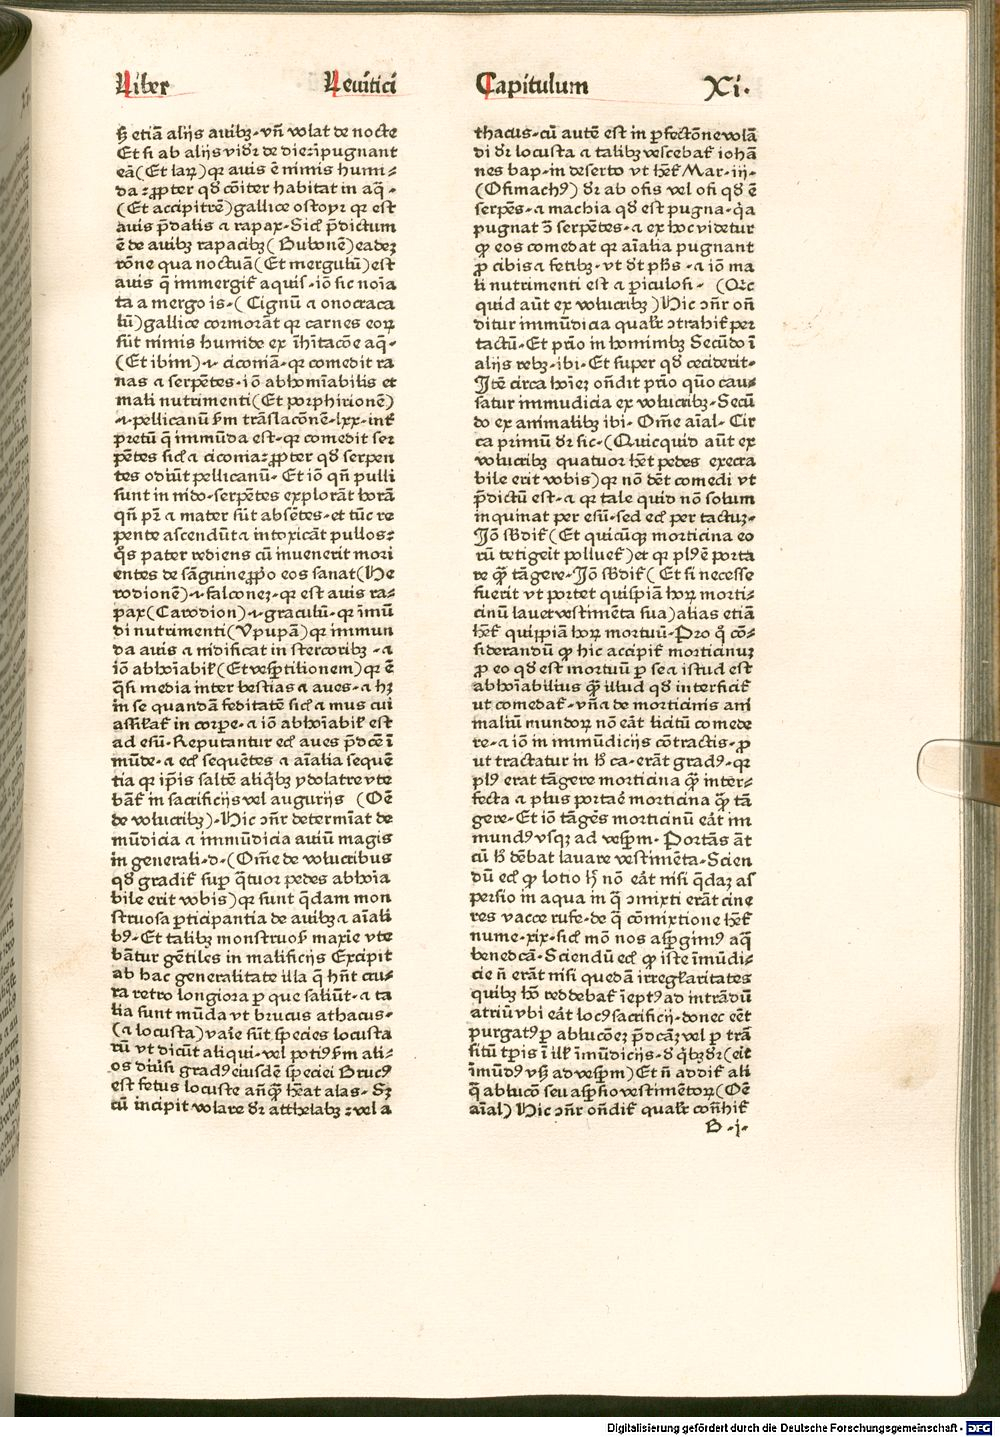 Liber Leuitici Capitulum Xi.
sꝫ etiā alijs auibꝫ. vñ volat de nocte
Et si ab alijs videt de die īpugnant
eā (Et larū) qꝛ auis ē nimis humi⸗
da ꝓpter qd̄ cōiter habitat in aq̄.
(Et accipitrē) gallice ostoyꝛ qꝛ est
auis p̄dalis ⁊ rapax. Sic p̄dictum
ē de auibꝫ rapacibꝫ (Bubonē) eadeꝫ
rōne qua noctuā (Et mergulū) est
auis q̄ immergit᷑ aquis. iō sic noīa
ta a mergo is. (Cignū ⁊ onocraca
lū) gallice cormorāt qꝛ carnes eoꝝ
sūt nimis humide ex īhītacōe aq̄.
(Et ibim) .i. ciconiā. qꝛ comedit ra
nas ⁊ serpētes. iō abhoīabilis et
mali nutrimenti (Et porphirionē)
.i. pellicanū ẜm trāslaconē .lxx. int᷑
pretū q̄ immūda est. qꝛ comedit ser
pētes sic ⁊ ciconia: ꝓpter qd̄ serpen
tes odiūt pellicanū. Et iō qn̄ pulli
sunt in nido. serpētes explorāt horā
qn̄ pr̄ ⁊ mater sūt absētes. et tūc re
pente ascendūt ⁊ intoxicāt pullos:
q̄s pater rediens cū inuenerit mori
entes de sāguine ꝓpo eos sanat (He
rodionē) .i. falconeꝫ. qꝛ est auis ra⸗
pax (Carodion) .i. graculū. qꝛ īmū
di nutrimenti (Vpupā) qꝛ immun
da auis ⁊ nidificat in stercoribꝫ. ⁊
iō abhoīabil᷑ (Et vesptilionem) qꝛ ē
q̄si media inter bestias ⁊ aues. ⁊ hꝫ
in se quandā feditatē sic ⁊ mus cui
assilat᷑ in corpe. ⁊ iō abhoīabil᷑ est
ad esū. Reputantur ec̄ aues p̄dcē ī
mūde. ⁊ ec̄ sequētes ⁊ aīalia sequē
tia qꝛ ip̄is saltē aliqbꝫ ydolatre vte
bāt᷑ in sacrificijs vel augurijs (Oē
de volucribꝫ). Hic ꝯn̄r determīat de
mūdicia ⁊ immūdicia auiū magis
in generali .d. (Om̄e de volucribus
qd̄ gradit᷑ sup q̄tuor pedes abhoīa
bile erit vobis) qꝛ sunt q̄dam mon
struosa ꝑticipantia de auibꝫ ⁊ aīali
bꝰ. Et talibꝫ monstruosꝭ maxīe vte
bātur gētiles in malificijs Excipit
ab hac generalitate illa q̄ hn̄t cru⸗
ra retro longiora ꝑ que saliūt. ⁊ ta
lia sunt mūda vt brucus athacus.
(⁊ locusta) vaīe sūt species locusta
rū vt dicūt aliqui. vel potiꝰ ẜm ali⸗
os diūsi gradꝰ eiusdē speciei Brucꝰ
est fetus locuste an̄q̄ hēat alas. Sꝫ
cū incipit volare dr̄ atthelabꝫ: vel a
thacus. cū autē est in ꝑfectōne volā
di dr̄ locusta ⁊ talibꝫ vescebat᷑ iohā
nes bap. in deserto vt hēt᷑ Mar. iij.
(Ofimachꝰ) dr̄ ab ofis vel ofi qd̄ ē
serpēs. ⁊ machia qd̄ est pugna. q̇a
pugnat ꝯ̄ serpētes. ⁊ ex hoc videtur
ꝙ eos comedat qꝛ aīalia pugnant
ꝓ cibis ⁊ fetibꝫ. vt dt̄ ph̄s. ⁊ iō ma
li nutrimenti est ⁊ ꝑiculosi. (Qic
quid aūt ex volucribꝫ) Hic ꝯn̄r on̄
ditur immūdicia qualr̄ ꝯtrahit᷑ per
tactū. Et prīo in hominibꝫ Secūdo ī
alijs rebꝫ. ibi. Et super qd̄ ceciderit.
Itē circa hoīeꝫ on̄dit prīo quō cau⸗
satur immudicia ex volucribꝫ. Secū
do ex animalibꝫ ibi. Om̄e aīal. Cir
ca primū dr̄ sic. (Quicquid aūt ex
volucribꝫ quatuor hēt pedes execra
bile erit vobis) qꝛ nō dēt comedi vt
p̄dictū est. ⁊ qꝛ tale quid nō solum
inquinat per esū. sed ec̄ per tactuꝫ.
Iō sb̄dit᷑ (Et quicūqꝫ morticina eo
rū tetigeīt polluet᷑) et qꝛ plꝰ ē porta
re q̄ tāgere. Iō sb̄dit᷑ (Et si necesse
fuerit vt portet quispiā hoꝝ morti⸗
cinū lauet vestimēta sua) alias etiā
hēt᷑ quippiā hoꝝ mortuū. Pro q̊ cō⸗
siderandū ꝙ hic accipit᷑ morticinuꝫ
ꝓ eo qd̄ est mortuū ꝑ se ⁊ istud est
abhoīabilius q̄ illud qd̄ interficit᷑
ut comedat᷑. vn̄ ⁊ de morticinis ani
maliū mundoꝝ nō eāt licitū comede
re. ⁊ iō in immūdicijs cōtractis. ꝓ
ut tractatur in h̄ ca. erāt gradꝰ. qꝛ
plꝰ erat tāgere morticina q̄ inter⸗
fecta ⁊ plus portaē morticina q̄ tā
gere. Et iō tāgēs morticinū eāt im
mundꝰ vsqꝫ ad vespm. Portās āt
cū h̄ dēbat lauare vestimēta. Scien
dū ec̄ ꝙ lotio h̄ nō eāt nisi q̄daꝫ as
persio in aqua in q̄ ꝯmixti erāt cine
res vacce rufe. de q̄ cōmixtione hēt᷑
nume. xix. sic mō nos aspgimꝰ aq̄
benedcā. Sciendū ec̄ ꝙ iste īmūdi⸗
cie n̄ erāt nisi quedā irregl̄aritates
quibꝫ hō reddebat᷑ īeptꝰ ad intrādū
atriū vbi eāt locꝰ sacrificij. donec eēt
purgatꝰ ꝑ ablucōeꝫ p̄dcāꝫ vel ꝑ trā
situ tꝑis ī ill᷑ īmūdicijs. d̄ q̄bꝫ dr̄ (eīt
īmūdꝰ vsꝫ ad vespm) Et n̄ addit᷑ ali
q̄ ablucō seu aspsio vestimētoꝝ (Oē
aīal) Hic ꝯn̄r on̄dit᷑ qualr̄ con̄hit᷑
B .i.
Digitalisierung gefördert durch die Deutsche Forschungsgemeinschaft - DFG